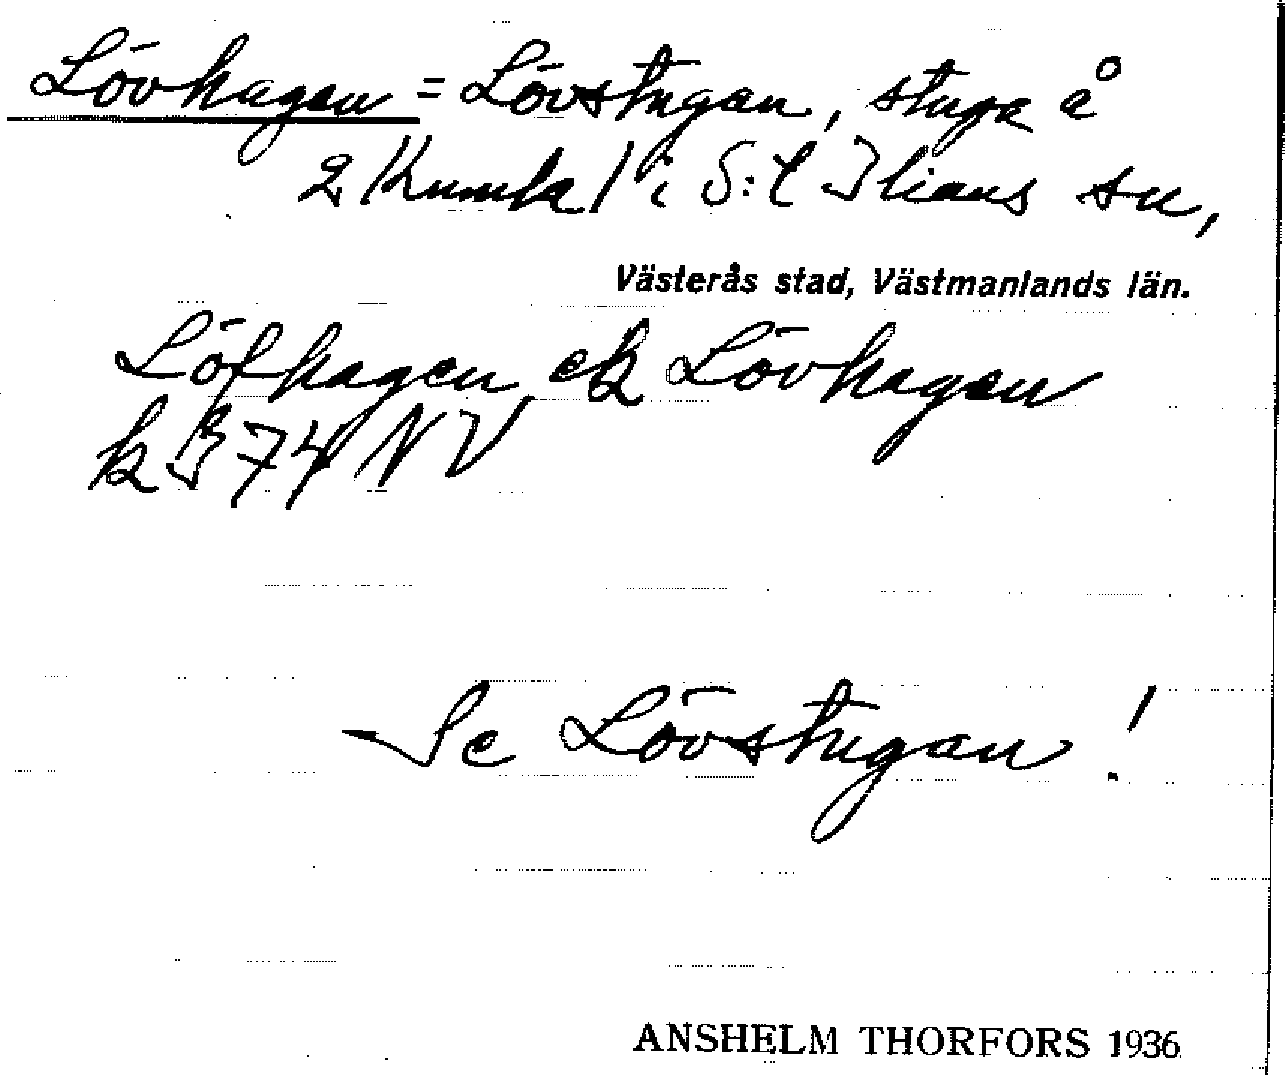 Lövhagen = Lövstugan, stuga å
2 Kumla / i S:t Ilians sn,
Västerås stad, Västmanlands län.
Löfhagen ek Lövhagen
k 374 NV
Se Lövstugan!
ANSHELM THORFORS 1936